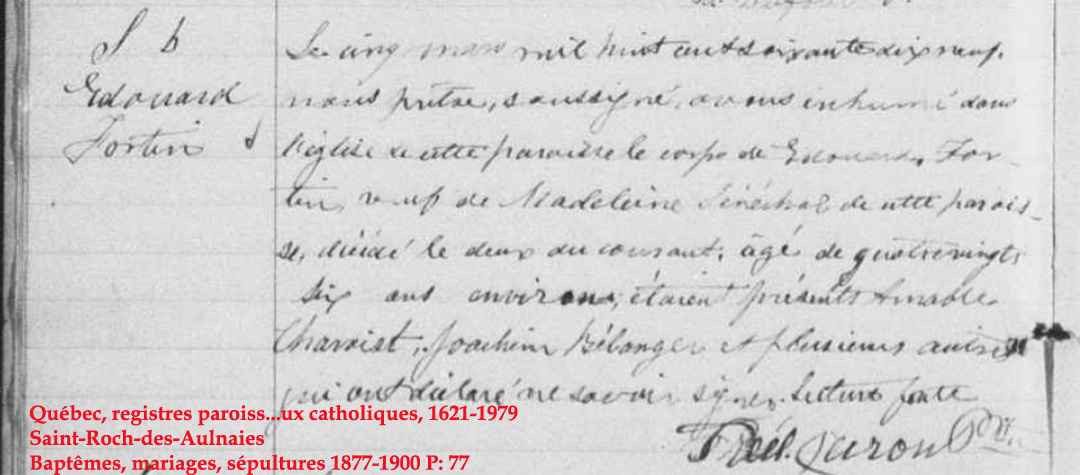 S 6
Edouard
Fortin
Le cinq mars mil huit cent soixante dix neuf,
nous prêtre, soussigné, avons inhumé dans
l'église de cette paroisse le corps de Edouard, For-
tin, veuf de Madeleine Sénéchal de cette parois-
se, décédé le deux du courant, âgé de quatrevingt
six ans environ; étaient présents Amable
Charoist, Joachim Bélanger et plusieurs autres
qui ont déclaré ne savoir signer. Lecture faite
Caron Ptr.
Québec, registres paroiss...ux catholiques, 1621-1979
Saint-Roch-des-Aulnaies
Baptêmes, mariages, sépultures 1877-1900 P: 77